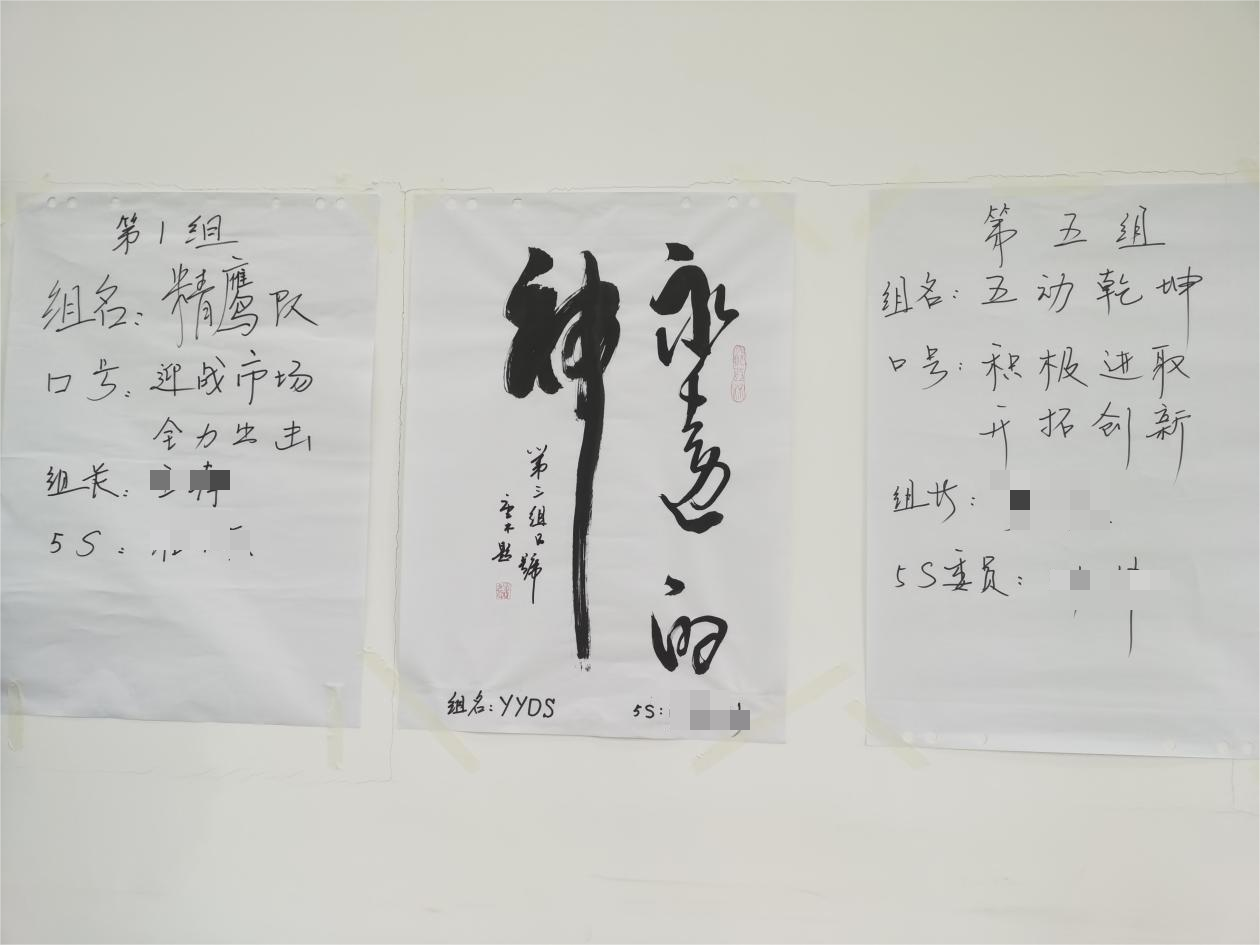 第1组
组名:精鹰队
口号:迎战市场
全力出击
组长:
5S:
永远的
神
第三组口號
组名:YYDS
5S:
第五组
组名:五动乾坤
口号:积极进取
开拓创新
组长:
5S委员: